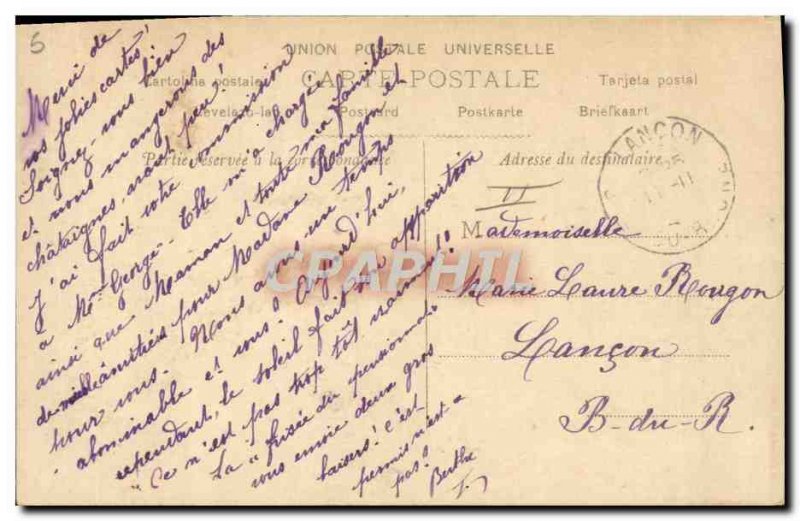 5
UNION POSTALE UNIVERSELLE
CARTE POSTALE
Cartolina postale
Tarjeta postal
Levelezo-la
Postcard
Postkarte
Briefkaart
Partie réservée à la correspondance
Adresse du destinataire
LANÇON
II
Merci de
vos jolies cartes!
Soignez-vous bien
et nous mangerons des
châtaignes, avant peu!
J'ai fait votre commission
à Mme George. Elle m'a chargée
ainsi que Maman et toute ma famille
de mille amitiés pour Madame Rougon et
pour vous. Nous avons un temps
abominable et vous? Aujourd'hui,
cependant, le soleil fait son apparition
"Ce n'est pas trop tôt vraiment!!
La "frisée du pensionnat"
vous envoie deux gros
baisers! c'est
permis n'est-ce
pas?
Berthe
Mademoiselle
Marie Laure Rougon
Lançon
B-du-R.
CRAPHIL